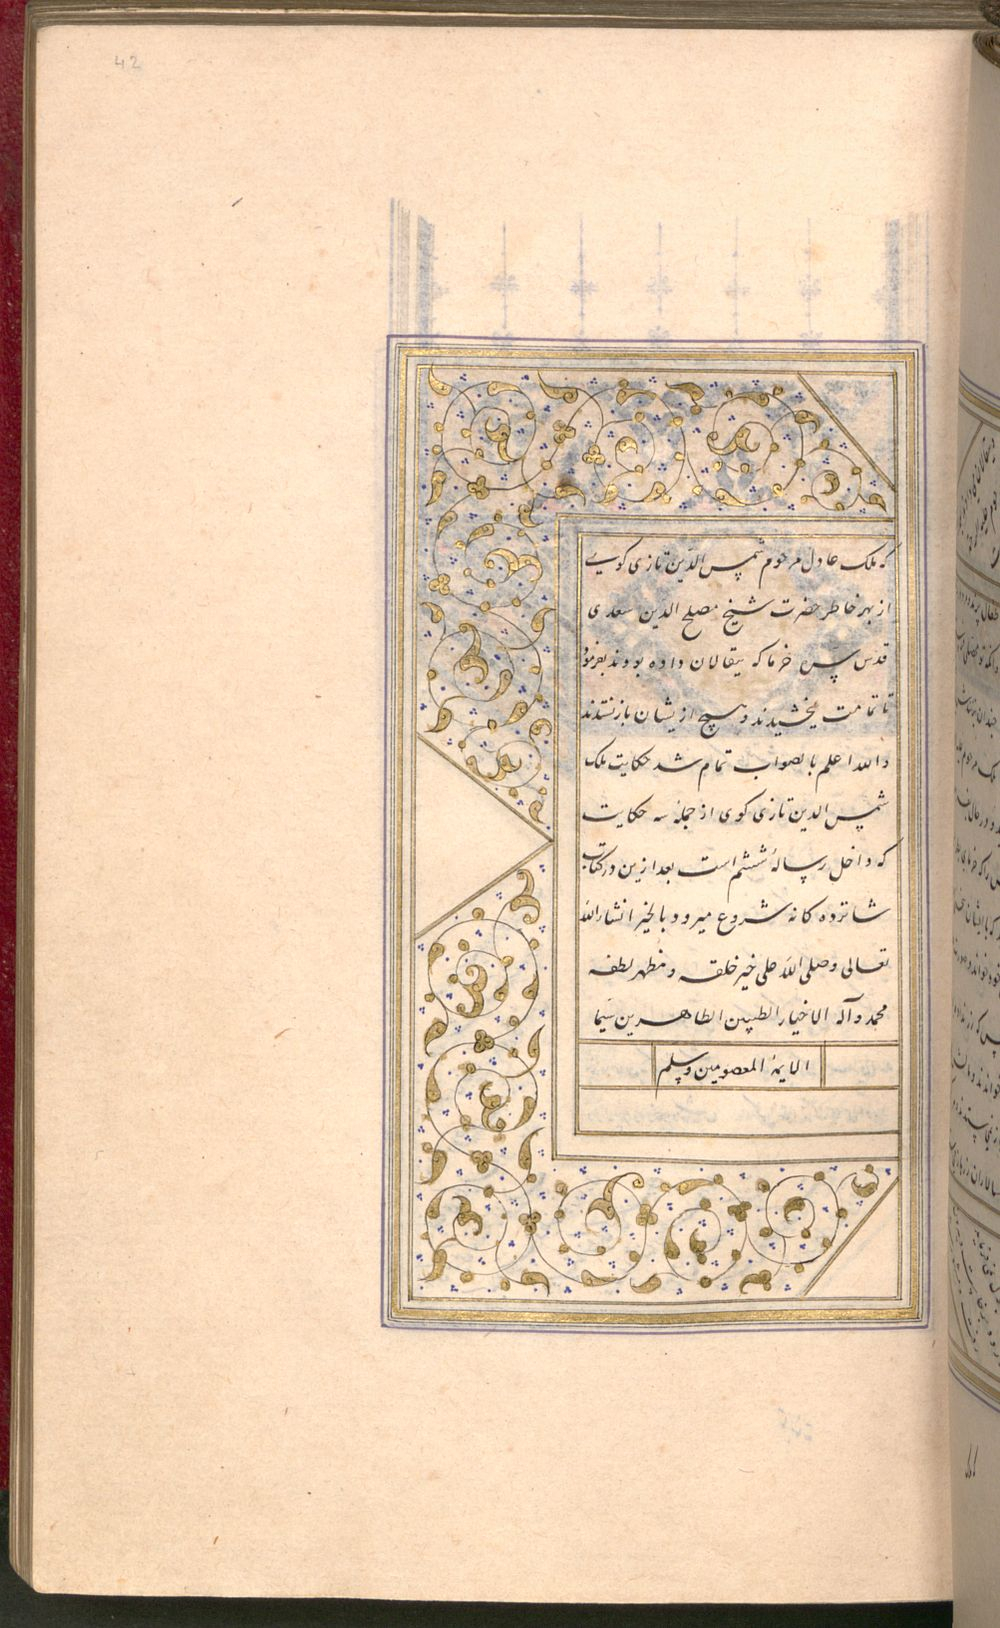 42
که ملک عادل مرحوم شمس الدین تازی کوی
از بهر خاطر حضرت شیخ مصلح الدین سعدی
قدس سره خرما که ببقالان داده بودند بفرمود
تا تمامت بخشیدند و هیچ از یشان بازنستدند
والله اعلم بالصواب تمام شد حکایت ملک
شمس الدین تازی کوی از جمله سه حکایت
که داخل رسالهٔ ششم است بعد ازین در کتاب
شانزده کانه شروع میرود بالخیر انشاء الله
تعالی وصلی الله علی خیر خلقه و مظهر لطفه
محمد وآله الاخیار الطیبین الطاهرین سیما
الایمهٔ المعصومین وسلم